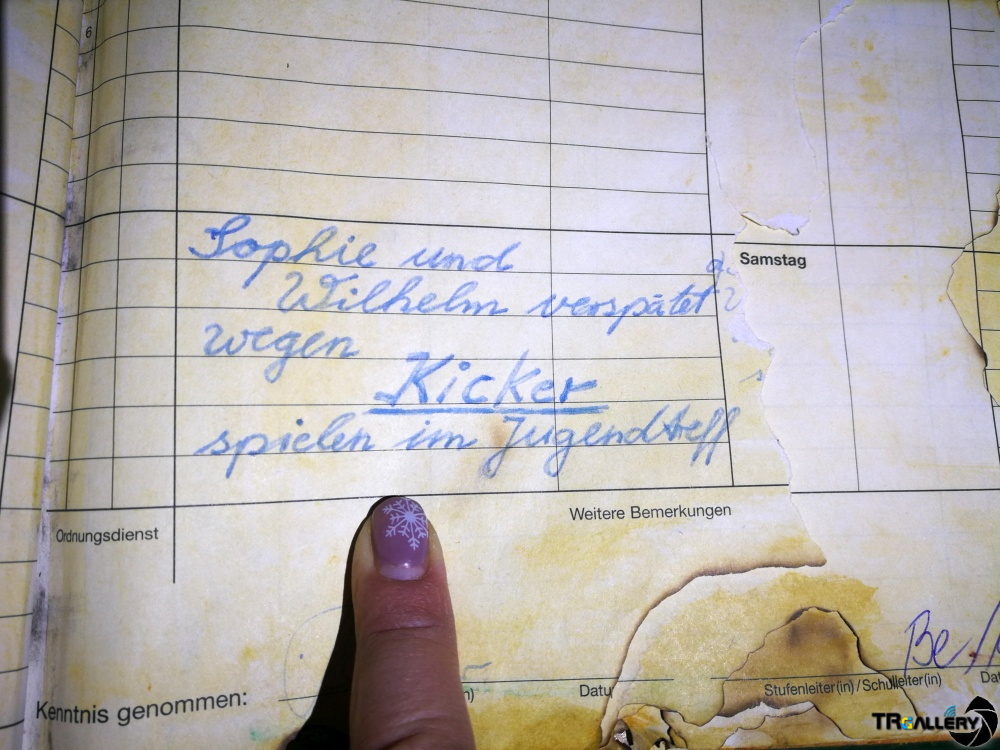 6
Sophie und
Wilhelm verspätet
wegen
Kicker
spielen im Jugendtreff
Samstag
Ordnungsdienst
Weitere Bemerkungen
Kenntnis genommen:
Stufenleiter(in) / Schulleiter(in)
TRGALLERY